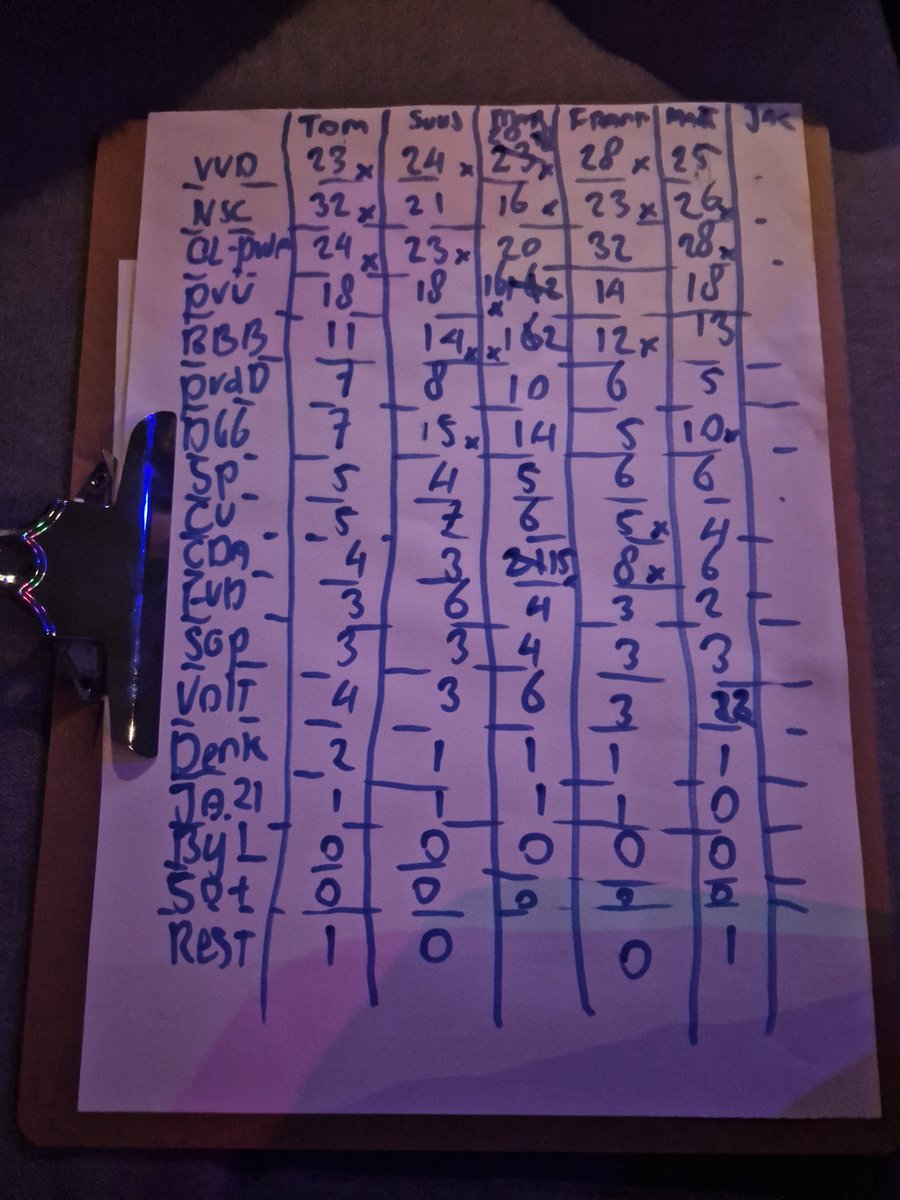 Tom Suus Frank
VVD 23 x 24 x 23 x 28 x 25
NSC 32 x 21 16 x 23 x 26 x
GL-PvdA 24 x 23 x 20 32 28 x
PVV 18 18 16 x 14 18
BBB 11 14 x x 162 12 x 13
PvdD 7 8 10 6 5
D66 7 15 x 14 5 10 x
SP 5 4 5 6 6
CU 5 7 6 5 x 4
CDA 4 3 8 x 6
FVD 3 6 4 3 2
SGP 3 3 4 3 3
VOLT 4 3 6 3
Denk 2 1 1 1 1
JA.21 1 1 1 1 0
ByL 0 0 0 0 0
Spt 0 0 0 0 0
Rest 1 0 0 1